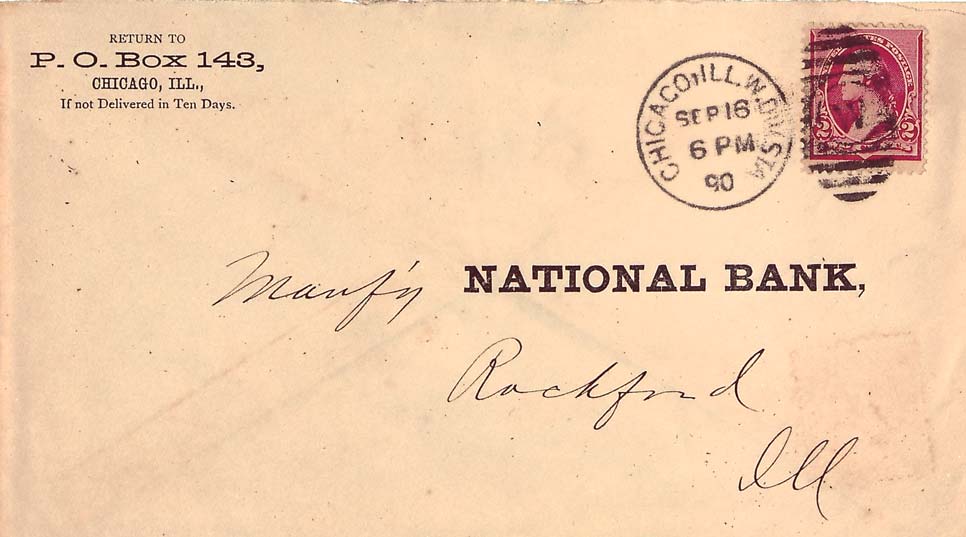 RETURN TO
P. O. Box 143,
CHICAGO, ILL.,
If not Delivered in Ten Days.
CHICAGO, ILL. W. DIV. STA
SEP 16
6 PM
90
2 2
Manf'g NATIONAL BANK,
Rockford
Ill